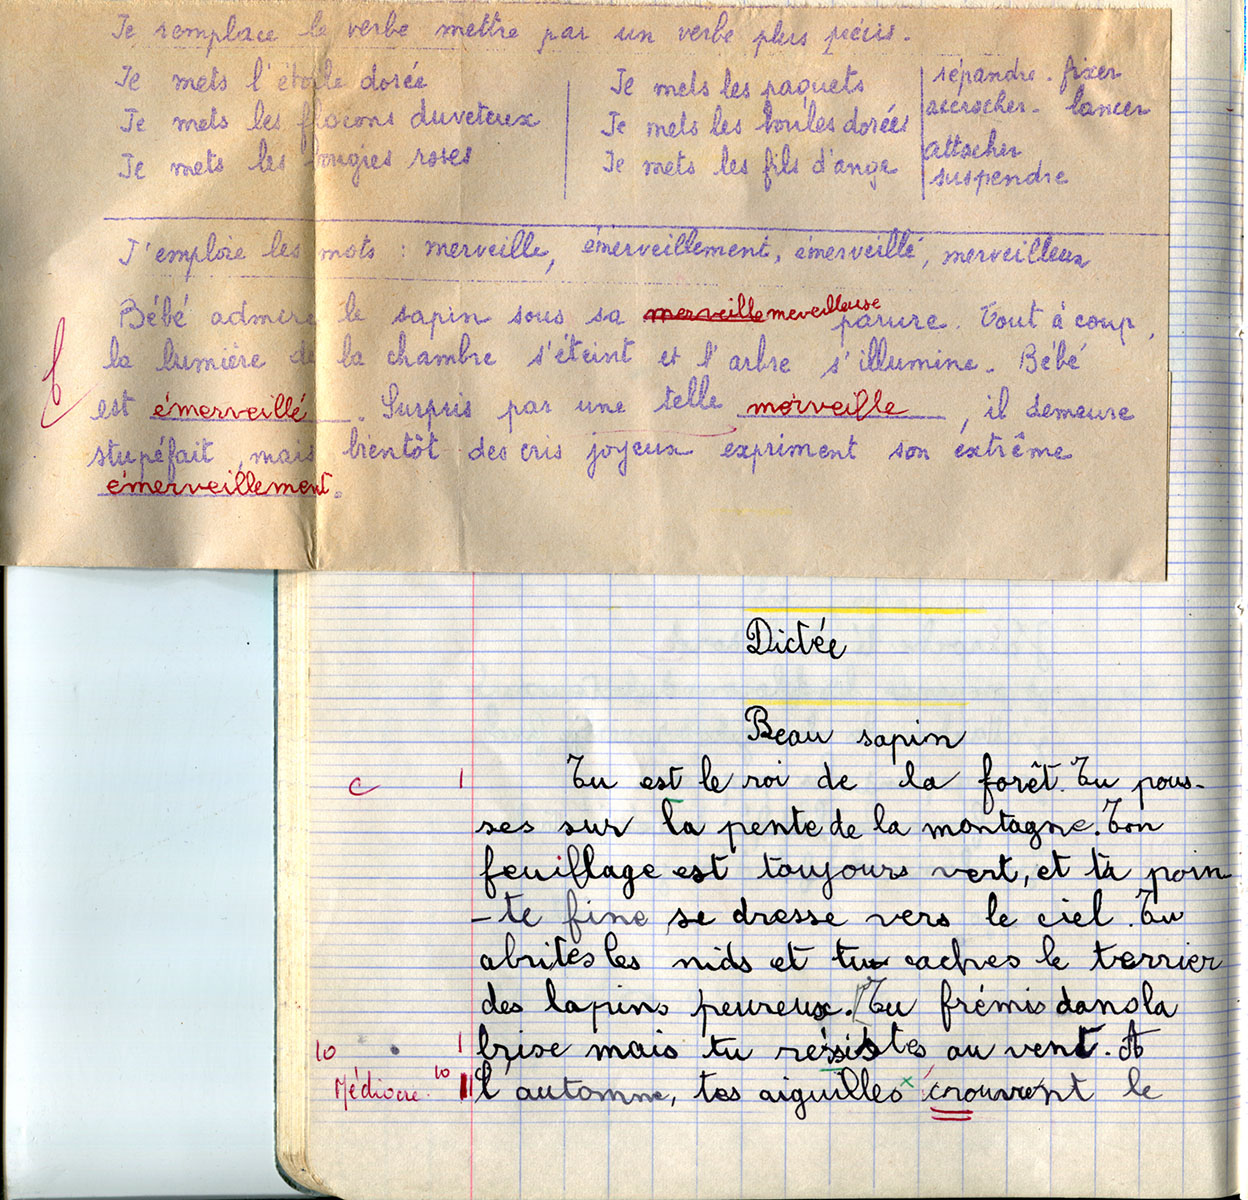 Je remplace le verbe mettre par un verbe plus précis.
Je mets l'étoile dorée
Je mets les flocons duveteux
Je mets les bougies roses
Je mets les paquets
Je mets les boules dorées
Je mets les fils d'ange
répandre - fixer
accrocher - lancer
attacher
suspendre
J'emploie les mots : merveille, émerveillement, émerveillé, merveilleux
Bébé admire le sapin sous sa merveille merveilleuse parure. Tout à coup,
la lumière de la chambre s'éteint et l'arbre s'illumine. Bébé
est émerveillé. Surpris par une telle merveille, il demeure
stupéfait, mais bientôt des cris joyeux expriment son extrême
émerveillement.
Dictée
Beau sapin
C 1 Tu est le roi de la forêt. Tu pous-
ses sur la pente de la montagne. Ton
feuillage est toujours vert, et ta poin
-te fine se dresse vers le ciel. Tu
abrites les nids et tu caches le terrier
des lapins peureux. Tu frémis dans la
10 1 brise mais tu résistes au vent. A
Médiocre 10 l'automne, tes aiguilles couvrent le